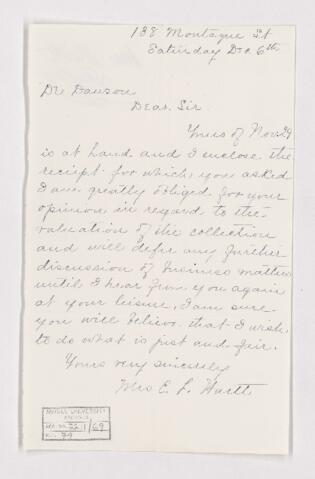 138 Montague St
Saturday Dec 6th
Dr Dawson
Dear Sir
Yours of Nov. 29
is at hand and I enclose the
receipt for which you asked
I am greatly obliged for your
opinion in regard to the
valuation of the collection
and will defer any further
discussion of business matters
until I hear from you again
at your leisure. I am sure
you will believe that I wish
to do what is just and fair.
Yours very sincerely
Mrs E. L. Hartt
McGILL UNIVERSITY
ARCHIVES
ACC. NO.
69